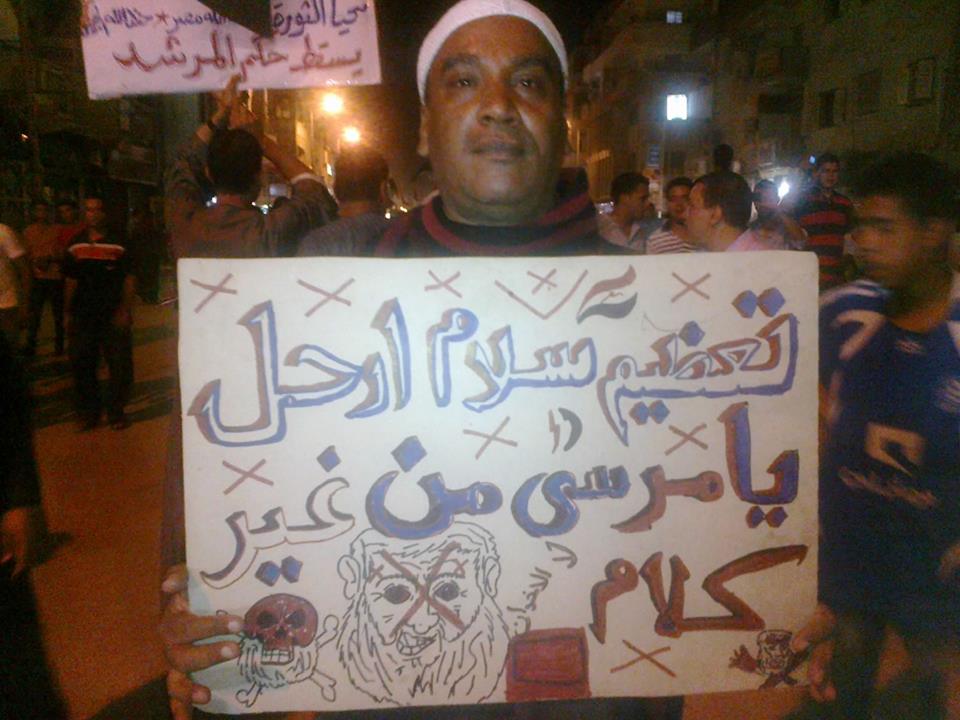 تحيا الثورة
يسقط حكم المرشد
تعظيم سلام ارحل
يا مرسى من غير
كلام